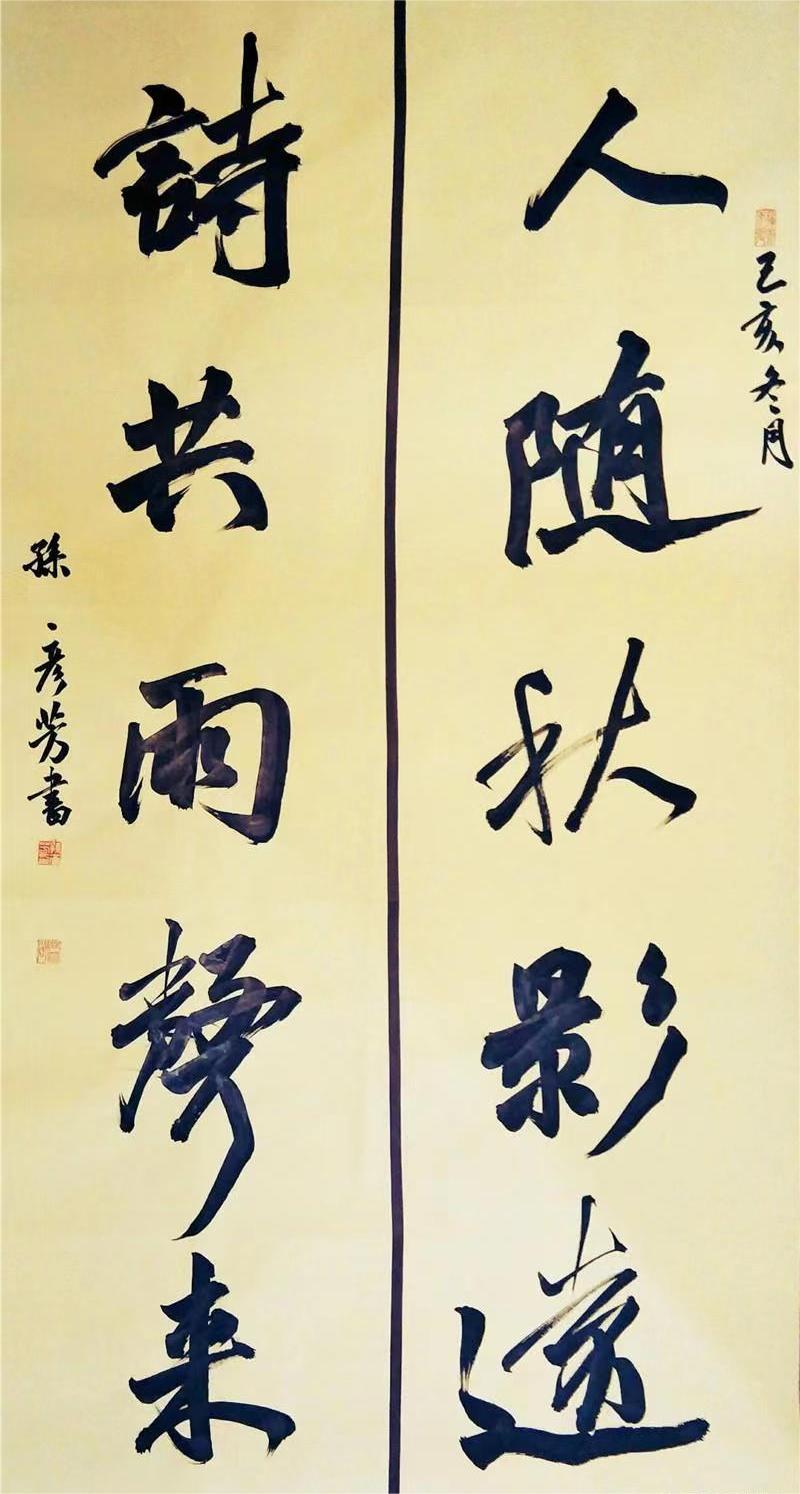 己亥冬月
人随秋影遠
詩共雨聲来
孫彦芳書